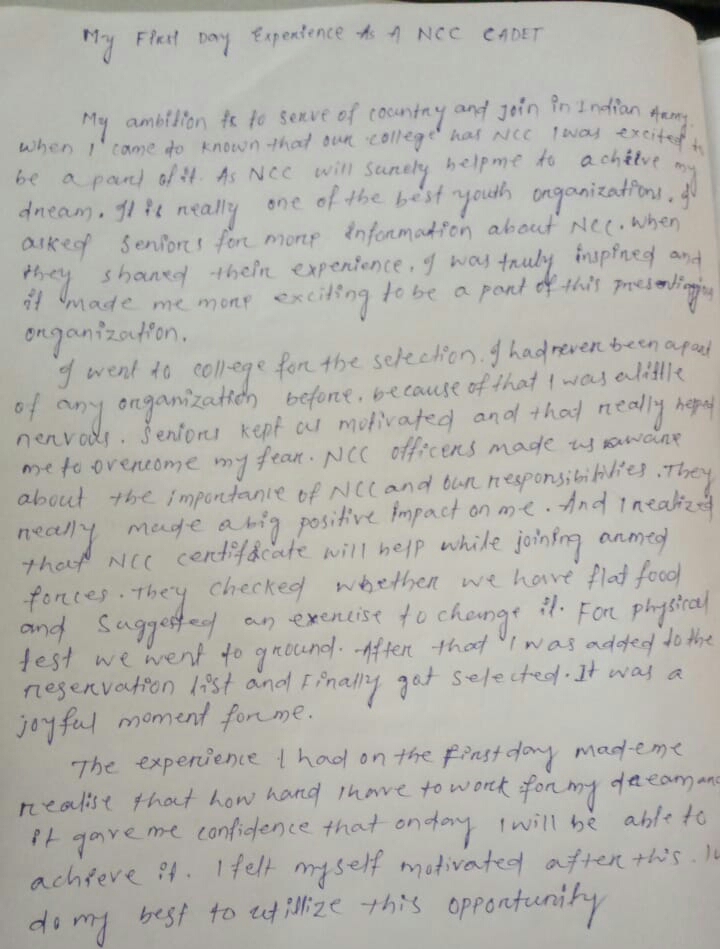 My First Day Experience As A NCC CADET
My ambition is to serve of country and join in Indian Army.
When I came to known that our college has NCC I was excited to
be a part of it. As NCC will surely help me to acheive my
dream. It is really one of the best youth organizations. I
asked Seniors for more information about NCC. When
they shared their experience. I was truly inspired and
it made me more exciting to be a part of this
organization.
I went to college for the selection. I had never been a part
of any organization before. because of that I was a little
nervous. Seniors kept us motivated and that really helped
me to overcome my fear. NCC officers made us aware
about the importance of NCC and our responsibilities. They
really made a big positive impact on me. And I realized
that NCC certificate will help while joining armed
forces. They checked whether we have flat food
and Suggested an exercise to change it. For physical
test we went to ground. After that I was added to the
reservation list and Finally got selected. It was a
joyful moment for me.
The experience I had on the first day made me
realise that how hard I have to work for my dream and
it gave me confidence that onday I will be able to
achieve it. I felt myself motivated after this.
do my best to utillize this opportunity